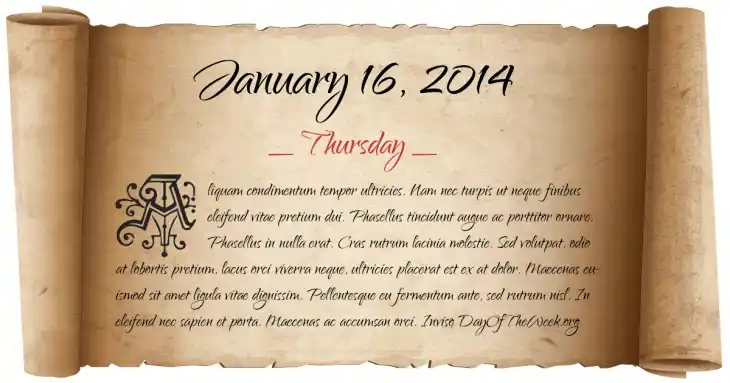 January 16, 2014
_ Thursday _
Aliquam condimentum tempor ultricies. Nam nec turpis ut neque finibus
eleifend vitae pretium dui. Phasellus tincidunt augue ac porttitor ornare.
Phasellus in nulla erat. Cras rutrum lacinia molestie. Sed volutpat, odio
at lobortis pretium, lacus orci viverra neque, ultricies placerat est ex at dolor. Maecenas eu-
ismod sit amet ligula vitae dignissim. Pellentesque eu fermentum ante, sed rutrum nisl. In
eleifend nec sapien et porta. Maecenas ac accumsan orci. Inviso DayOfTheWeek.org